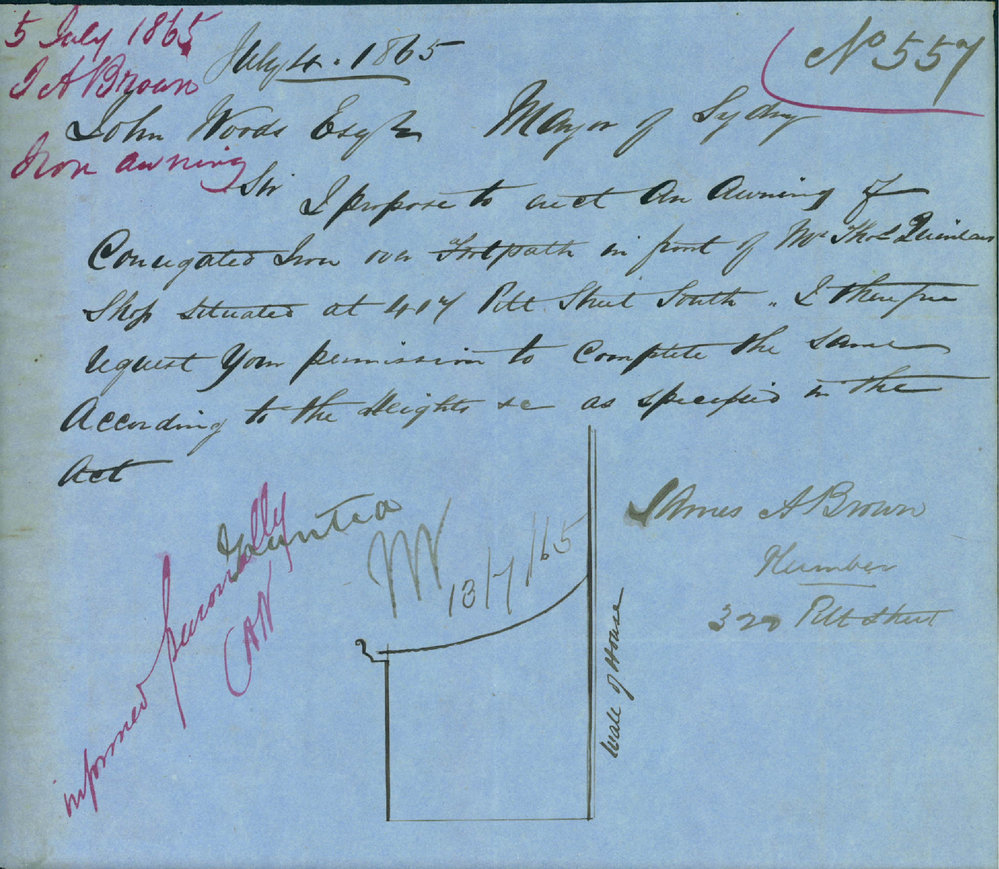 5 July 1865
J A Brown
Iron awning
No 557
July 4. 1865
John Woods Esqr Mayor of Sydny
Sir I propose to erect An Awning of
Corrugated Iron over Footpath in front of Mr Thos Quinlans
Shop situated at 417 Pitt Street South . I therefore
request Your permission to Complete the same
According to the Heights &c as specified in the
Act
James A Brown
Plumber
320 Pitt Street
Granted
13/7/65
informed personally
Wall of House